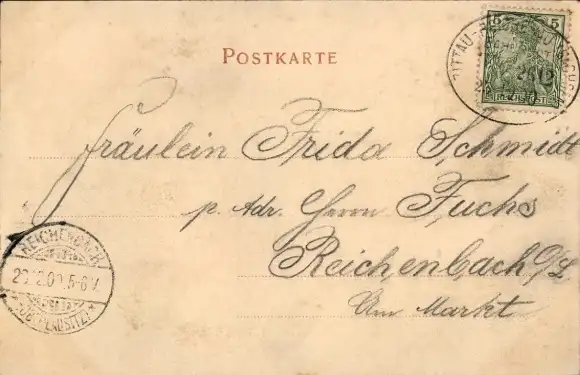 POSTKARTE
5
REICHSPOST
Fräulein Frida Schmidt
p. Adr. Herrn Fuchs
Reichenbach O/L
Am Markt
REICHENBACH
(OBERLAUSITZ)